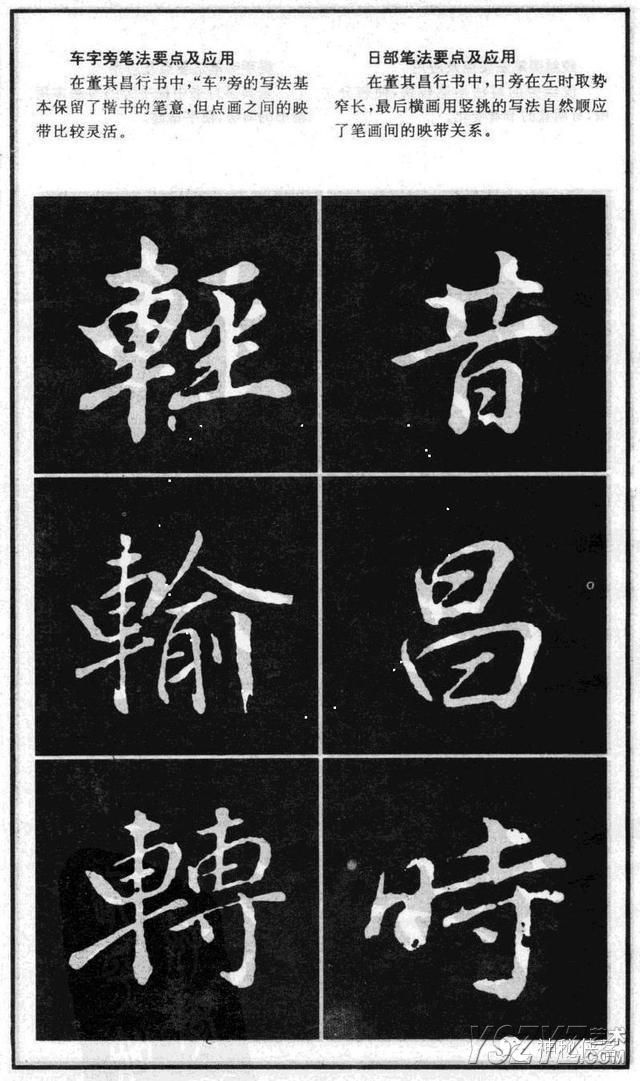 车字旁笔法要点及应用
在董其昌行书中，“车”旁的写法基
本保留了楷书的笔意，但点画之间的映
带比较灵活。
日部笔法要点及应用
在董其昌行书中，日旁在左时取势
窄长，最后横画用竖挑的写法自然顺应
了笔画间的映带关系。
輕
昔
輸
昌
轉
時
YSZYZ艺术